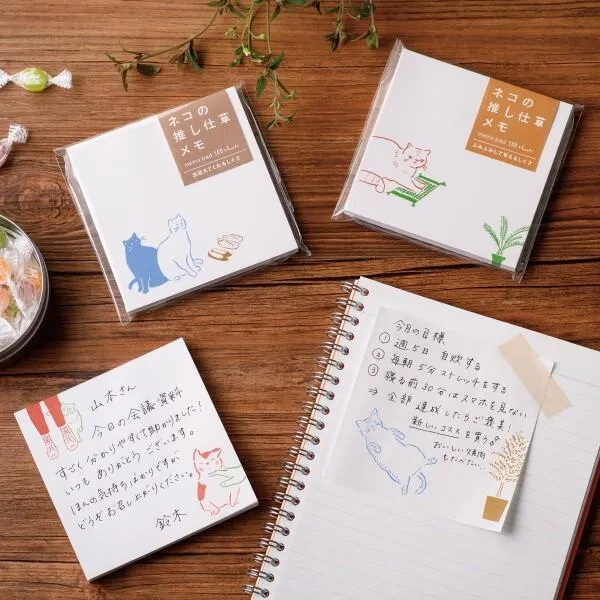 ネコの
推し仕草
メモ
memo pad 100 sheets
出迎えてくれるしぐさ
ネコの
推し仕草
メモ
memo pad 100 sheets
ふみふみして甘えるしぐさ
山本さん
今日の会議資料
すごく分かりやすくて助かりました!
いつもありがとうございます。
ほんの気持ちばかりですが
どうぞお召し上がりください。
鈴木
今月の目標
① 週5日 自炊する
② 毎朝5分ストレッチをする
③ 寝る前30分はスマホを見ない
⇒ 全部 達成したらご褒美!
新しいコスメを買う
おいしい焼肉
もたべたい…